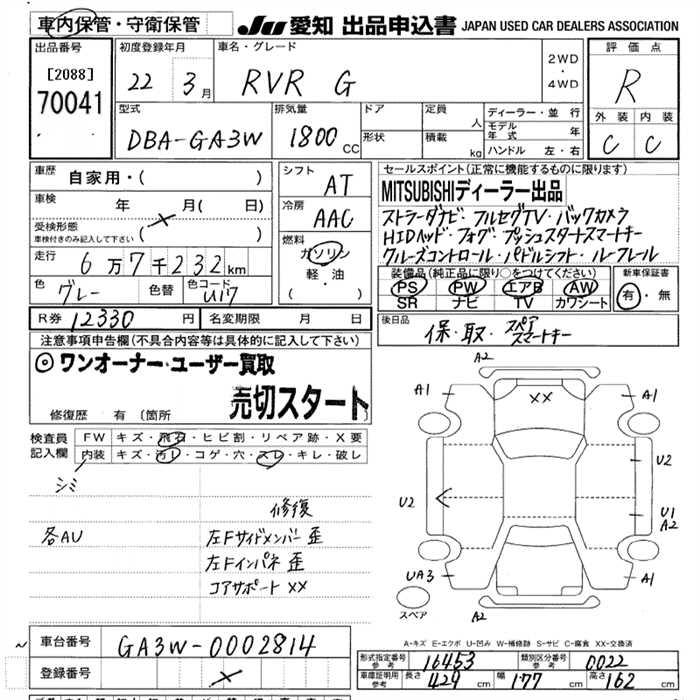 車内保管・守衛保管 JU 愛知 出品申込書 JAPAN USED CAR DEALERS ASSOCIATION
出品番号 初度登録年月 車名・グレード 評価点
[2088] 22 3月 RVR G 2WD・4WD R
70041
型式 排気量 ドア 定員 ディーラー・並行 外装 内装
DBA-GA3W 1800CC 形状 人 モデル年式 年 C C
積載 kg ハンドル 左・右
車歴 自家用・( ) シフト AT セールスポイント(正常に機能するものに限ります)
車検 年 月( 日) 冷房 AAC MITSUBISHIディーラー出品
受検形態 ストラーダナビ・フルセグTV・バックカメラ
車検付きのみ記入して下さい ( ) 燃料 HIDヘッド・フォグ・プッシュスタートスマートキー
走行 6万7千232km ガソリン 軽・油 クルーズコントロール・パドルシフト・ルーフレール
( ) 装備品(純正品に限り○をつけてください) 新車保証書
色 グレー 色替 色コード U17 PS PW エアB AW 有・無
SR ナビ TV カワシート
R券 12330円 名変期限 月 日 後日品 保・取・スペアスマートキー
注意事項申告欄(不具合内容等は具体的に記入して下さい)
◎ワンオーナー・ユーザー買取
売切スタート
修復歴 有 〔箇所
検査員 FW キズ・飛石・ヒビ割・リペア跡・X要
記入欄 内装 キズ・汚レ・コゲ・穴・スレ・キレ・破レ
シミ
修復
各AU 左Fサイドメンバー 歪
左Fインパネ 歪
コアサポート XX
A2
A1 XX A1
U2
U2 U1
A2
UA3 A1
スペア A2
A-キズ E-エクボ U-凹み W-補修跡 S-サビ C-腐食 XX-交換済
車台番号 GA3W-0002814
登録番号
形式指定番号 参考 16453 類別区分番号 参考 0022
車庫証明用 参考 長さ 429 cm 幅 177 cm 高さ 162 cm